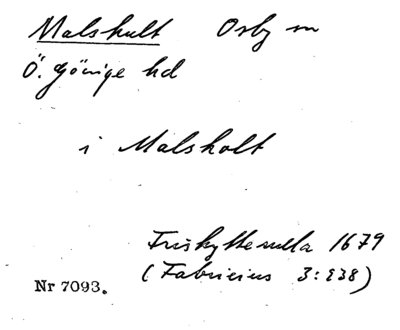 Malshult Osby sn
Ö. Göinge hd
i Malsholt
Friskytterulla 1679
(Fabricius 3:238)
Nr 7093.